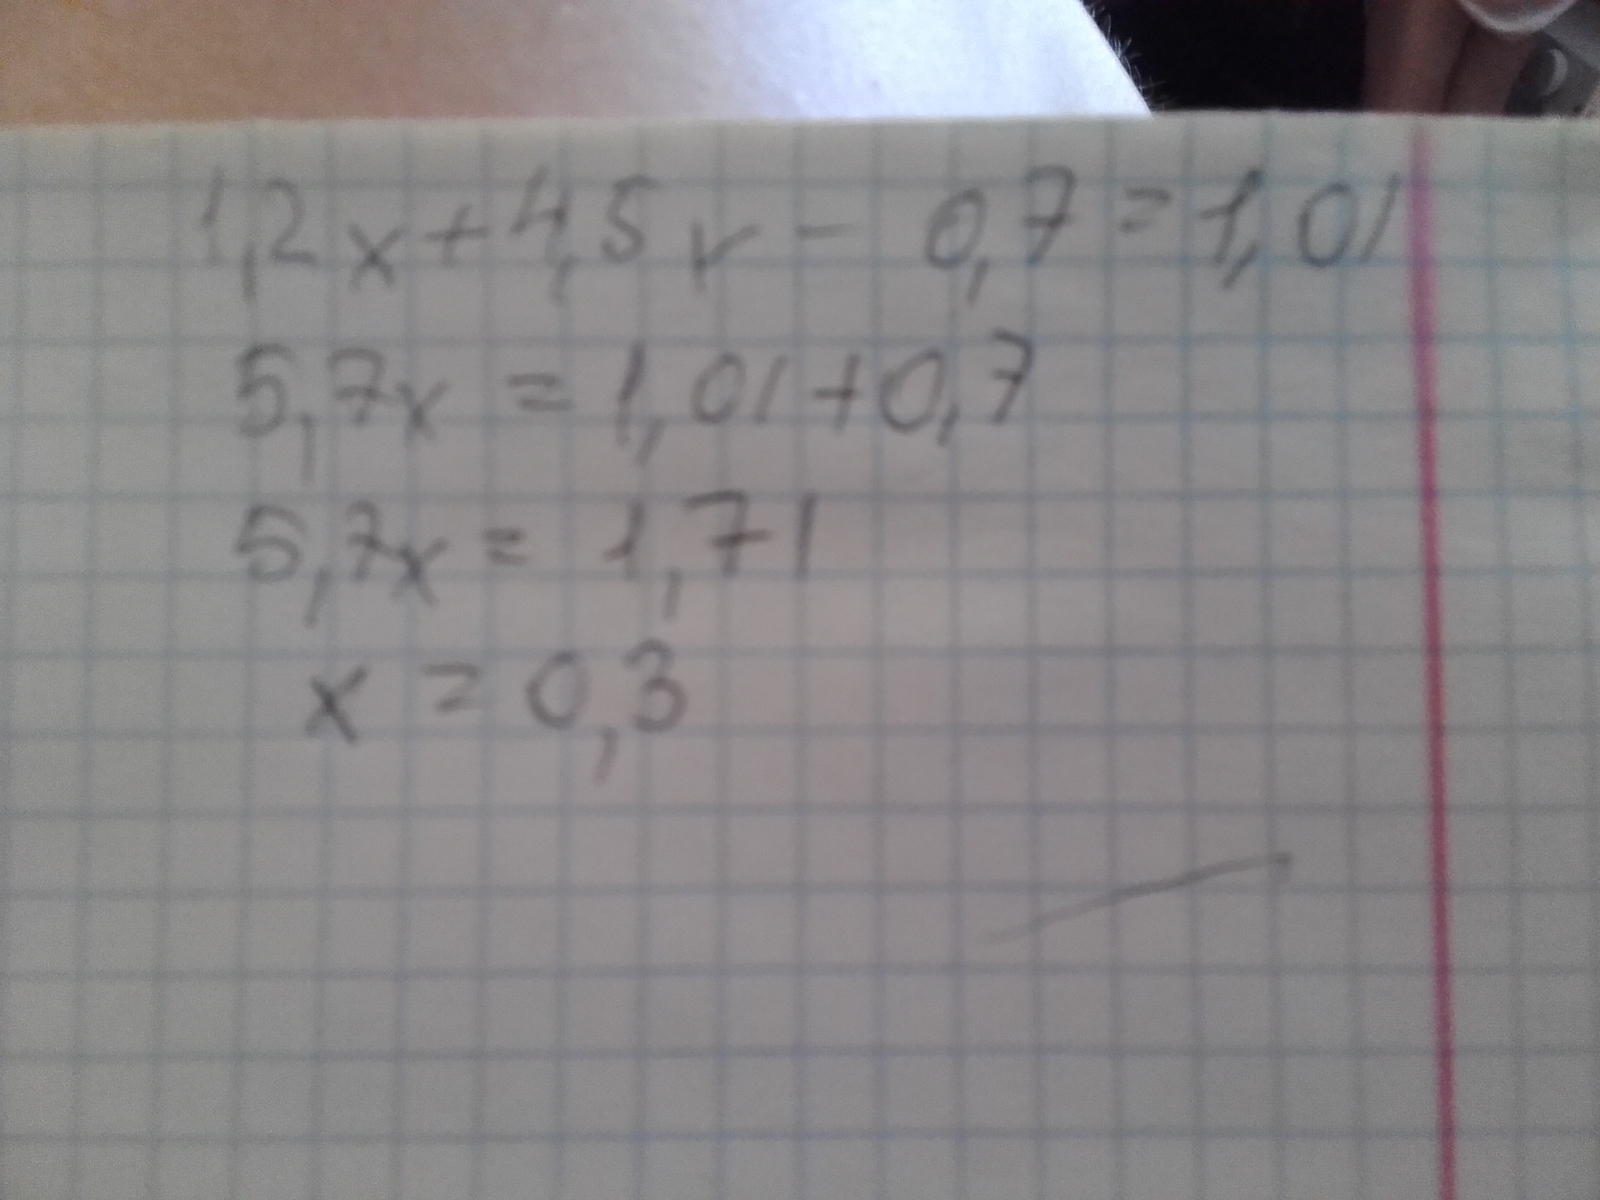 1,2x+4,5x - 0,7=1,01
5,7x = 1,01+0,7
5,7x = 1,71
x = 0,3